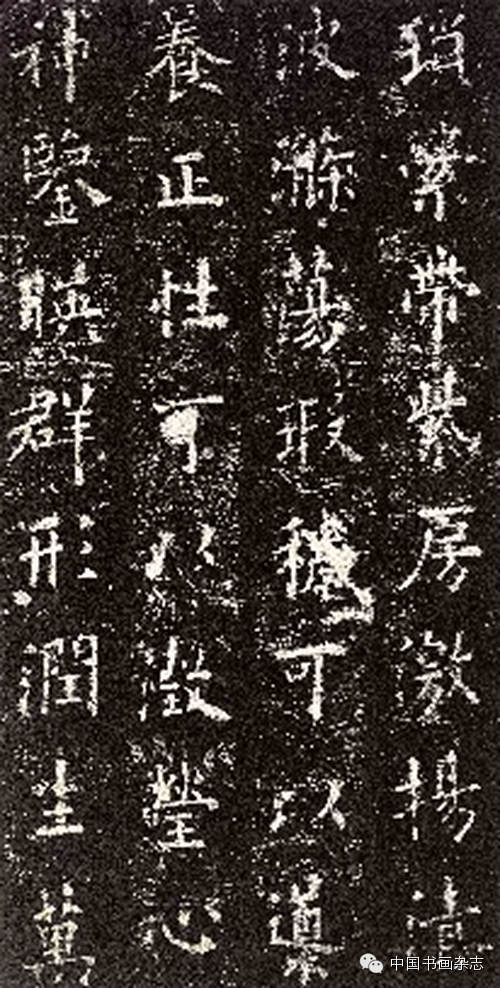 瑣縈帶紫房激揚清
波滌蕩瑕穢可以導
養正性可以澂瑩心
神鑒暎群形潤生萬
中国书画杂志